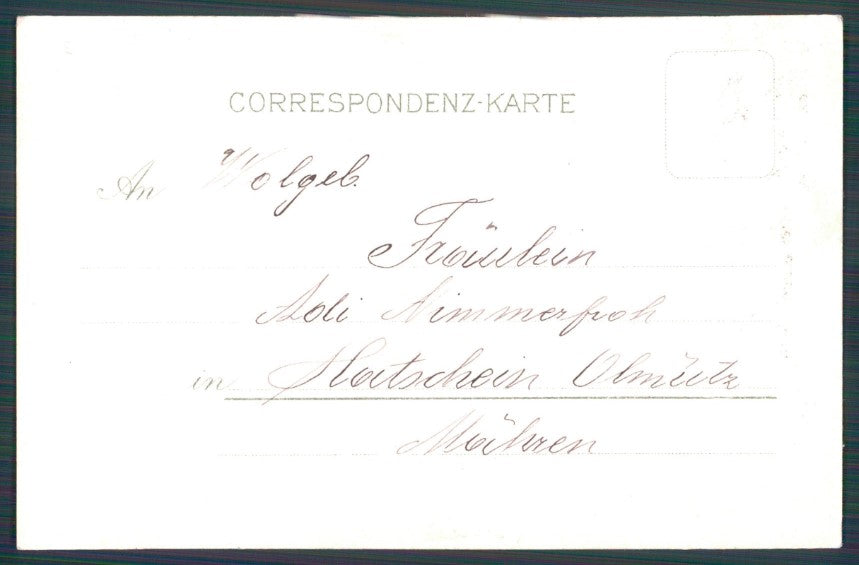 CORRESPONDENZ-KARTE
An Wolgeb.
Fräulein
Adi Nimmerfroh
in Hatschein Olmütz
Mähren